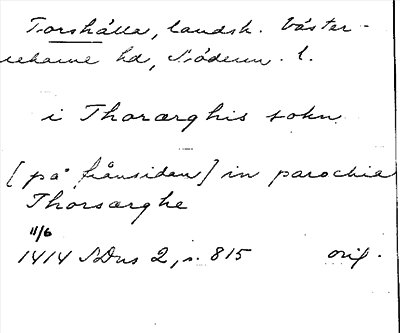 Torshälla, landsk. Väster-
rekarne hd, Söderm. l.
i Thoræghis sokn
[på frånsidan] in parochia
Thorsæghe
11/6
1414 SDns 2, s. 815 orig.